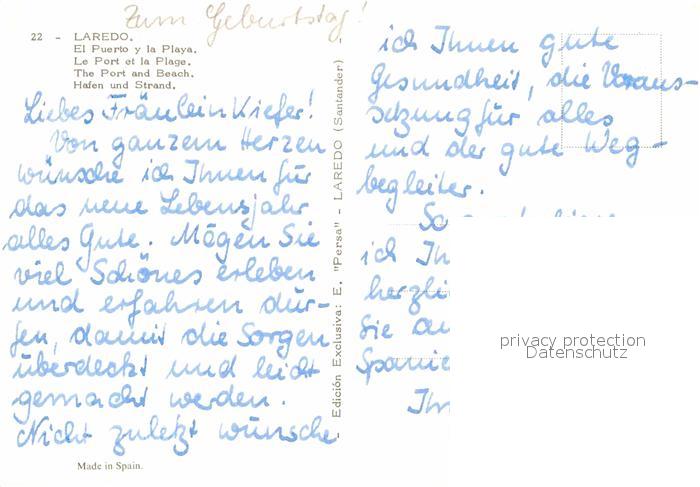 Zum Geburtstag!
22 - LAREDO.
El Puerto y la Playa.
Le Port et la Plage.
The Port and Beach.
Hafen und Strand.
Liebes Fräulein Kiefer!
Von ganzem Herzen
wünsche ich Ihnen für
das neue Lebensjahr
alles Gute. Mögen Sie
viel Schönes erleben
und erfahren dür-
fen, damit die Sorgen
überdeckt und leicht
gemacht werden.
Nicht zuletzt wünsche
Made in Spain.
Edición Exclusiva: E. "Persa" - LAREDO (Santander) -
ich Ihnen gute
Gesundheit, die Voraus-
setzung für alles
und der gute Weg-
begleiter.
So
ich Ih
herzli
Sie au
Spanie
Ihr
privacy protection
Datenschutz